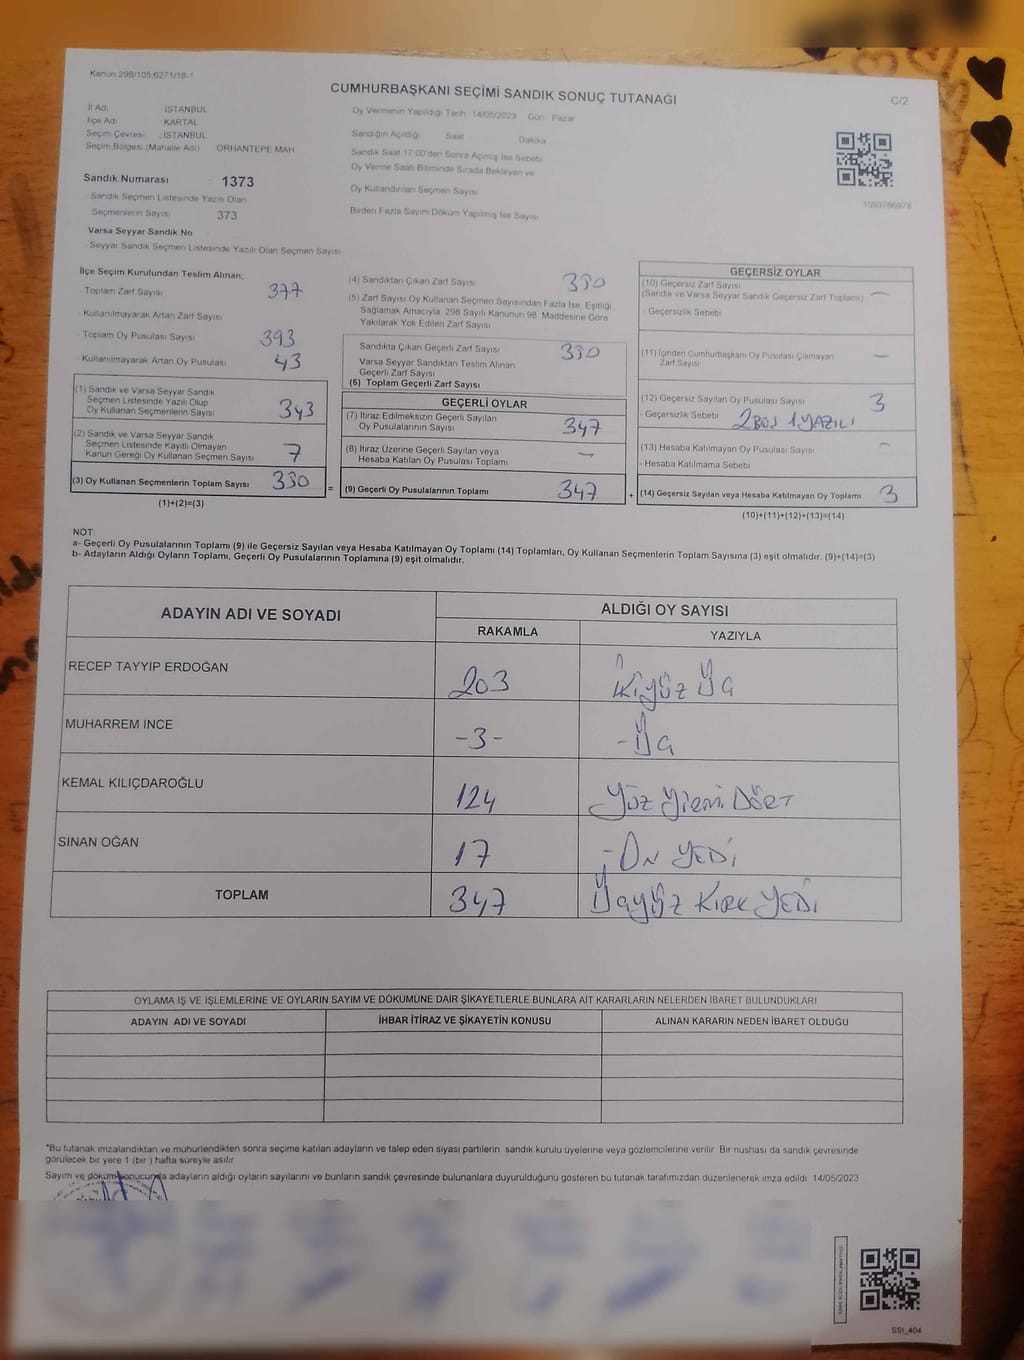 Kanun:298/105,6271/18-1
CUMHURBAŞKANI SEÇİMİ SANDIK SONUÇ TUTANAĞI
C/2
İl Adı : İSTANBUL
İlçe Adı : KARTAL
Seçim Çevresi : İSTANBUL
Seçim Bölgesi (Mahalle Adı) ORHANTEPE MAH
Sandık Numarası : 1373
Sandık Seçmen Listesinde Yazılı Olan
Seçmenlerin Sayısı 373
Varsa Seyyar Sandık No
- Seyyar Sandık Seçmen Listesinde Yazılı Olan Seçmen Sayısı
Oy Vermenin Yapıldığı Tarih 14/05/2023 Gün Pazar
Sandığın Açıldığı Saat Dakika
Sandık Saat 17:00'den Sonra Açılmış İse Sebebi
Oy Verme Saati Bitiminde Sırada Bekleyen ve
Oy Kullandırılan Seçmen Sayısı
Birden Fazla Sayım Döküm Yapılmış İse Sayısı
1093786978
İlçe Seçim Kurulundan Teslim Alınan;
- Toplam Zarf Sayısı 377
- Kullanılmayarak Artan Zarf Sayısı
- Toplam Oy Pusulası Sayısı 393
- Kullanılmayarak Artan Oy Pusulası 43
(1) Sandık ve Varsa Seyyar Sandık
Seçmen Listesinde Yazılı Olup
Oy Kullanan Seçmenlerin Sayısı 343
(2) Sandık ve Varsa Seyyar Sandık
Seçmen Listesinde Kayıtlı Olmayan
Kanun Gereği Oy Kullanan Seçmen Sayısı 7
(3) Oy Kullanan Seçmenlerin Toplam Sayısı 330 =
(1)+(2)=(3)
(4) Sandıktan Çıkan Zarf Sayısı 330
(5) Zarf Sayısı Oy Kullanan Seçmen Sayısından Fazla İse, Eşitliği
Sağlamak Amacıyla; 298 Sayılı Kanunun 98. Maddesine Göre
Yakılarak Yok Edilen Zarf Sayısı
Sandıkta Çıkan Geçerli Zarf Sayısı 330
Varsa Seyyar Sandıktan Teslim Alınan
Geçerli Zarf Sayısı
(6) Toplam Geçerli Zarf Sayısı
GEÇERLİ OYLAR
(7) İtiraz Edilmeksizin Geçerli Sayılan
Oy Pusulalarının Sayısı 347
(8) İtiraz Üzerine Geçerli Sayılan veya
Hesaba Katılan Oy Pusulası Toplamı —
(9) Geçerli Oy Pusulalarının Toplamı 347 +
GEÇERSİZ OYLAR
(10) Geçersiz Zarf Sayısı
(Sandık ve Varsa Seyyar Sandık Geçersiz Zarf Toplamı) —
- Geçersizlik Sebebi
(11) İçinden Cumhurbaşkanı Oy Pusulası Çıkmayan
Zarf Sayısı —
(12) Geçersiz Sayılan Oy Pusulası Sayısı 3
- Geçersizlik Sebebi 2 BOŞ 1 YAZILI
(13) Hesaba Katılmayan Oy Pusulası Sayısı —
- Hesaba Katılmama Sebebi
(14) Geçersiz Sayılan veya Hesaba Katılmayan Oy Toplamı 3
(10)+(11)+(12)+(13)=(14)
NOT:
a- Geçerli Oy Pusulalarının Toplamı (9) ile Geçersiz Sayılan veya Hesaba Katılmayan Oy Toplamı (14) Toplamları, Oy Kullanan Seçmenlerin Toplam Sayısına (3) eşit olmalıdır. (9)+(14)=(3)
b- Adayların Aldığı Oyların Toplamı, Geçerli Oy Pusulalarının Toplamına (9) eşit olmalıdır.
ADAYIN ADI VE SOYADI ALDIĞI OY SAYISI
RAKAMLA YAZIYLA
RECEP TAYYİP ERDOĞAN 203 İKİYÜZ ÜÇ
MUHARREM İNCE -3- -ÜÇ
KEMAL KILIÇDAROĞLU 124 YÜZ YİRMİ DÖRT
SİNAN OĞAN 17 -ON YEDİ
TOPLAM 347 ÜÇYÜZ KIRK YEDİ
OYLAMA İŞ VE İŞLEMLERİNE VE OYLARIN SAYIM VE DÖKÜMÜNE DAİR ŞİKAYETLERLE BUNLARA AİT KARARLARIN NELERDEN İBARET BULUNDUKLARI
ADAYIN ADI VE SOYADI İHBAR İTİRAZ VE ŞİKAYETİN KONUSU ALINAN KARARIN NEDEN İBARET OLDUĞU
*Bu tutanak imzalandıktan ve mühürlendikten sonra seçime katılan adayların ve talep eden siyasi partilerin sandık kurulu üyelerine veya gözlemcilerine verilir. Bir nüshası da sandık çevresinde
görülecek bir yere 1 (bir) hafta süreyle asılır
Sayım ve döküm sonucunda adayların aldığı oyların sayılarını ve bunların sandık çevresinde bulunanlara duyurulduğunu gösteren bu tutanak tarafımızdan düzenlenerek imza edildi. 14/05/2023
SSI_404